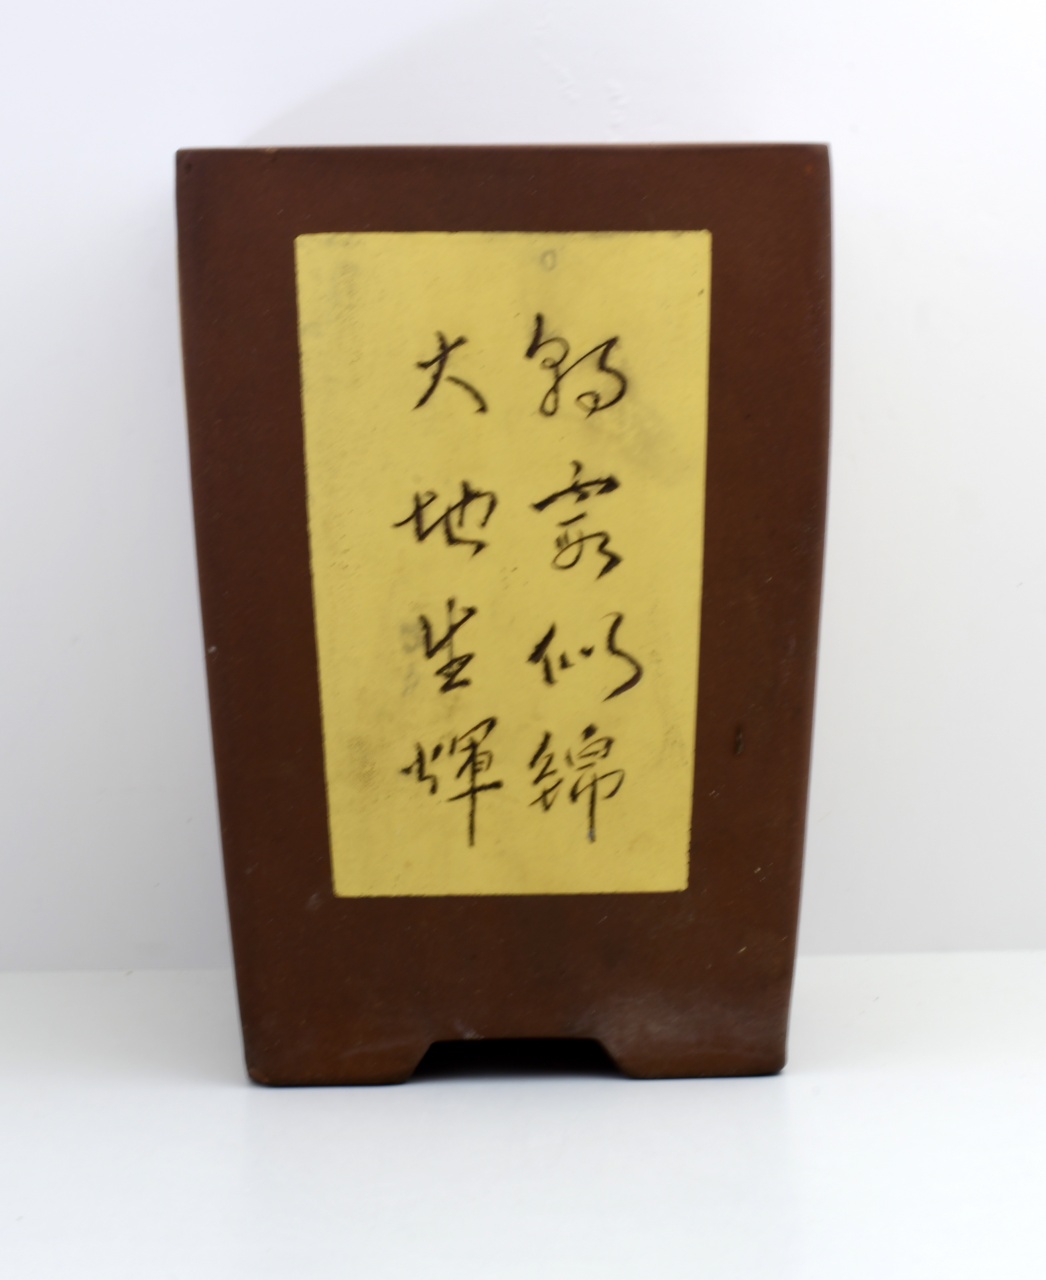 朝霞似錦
大地生輝